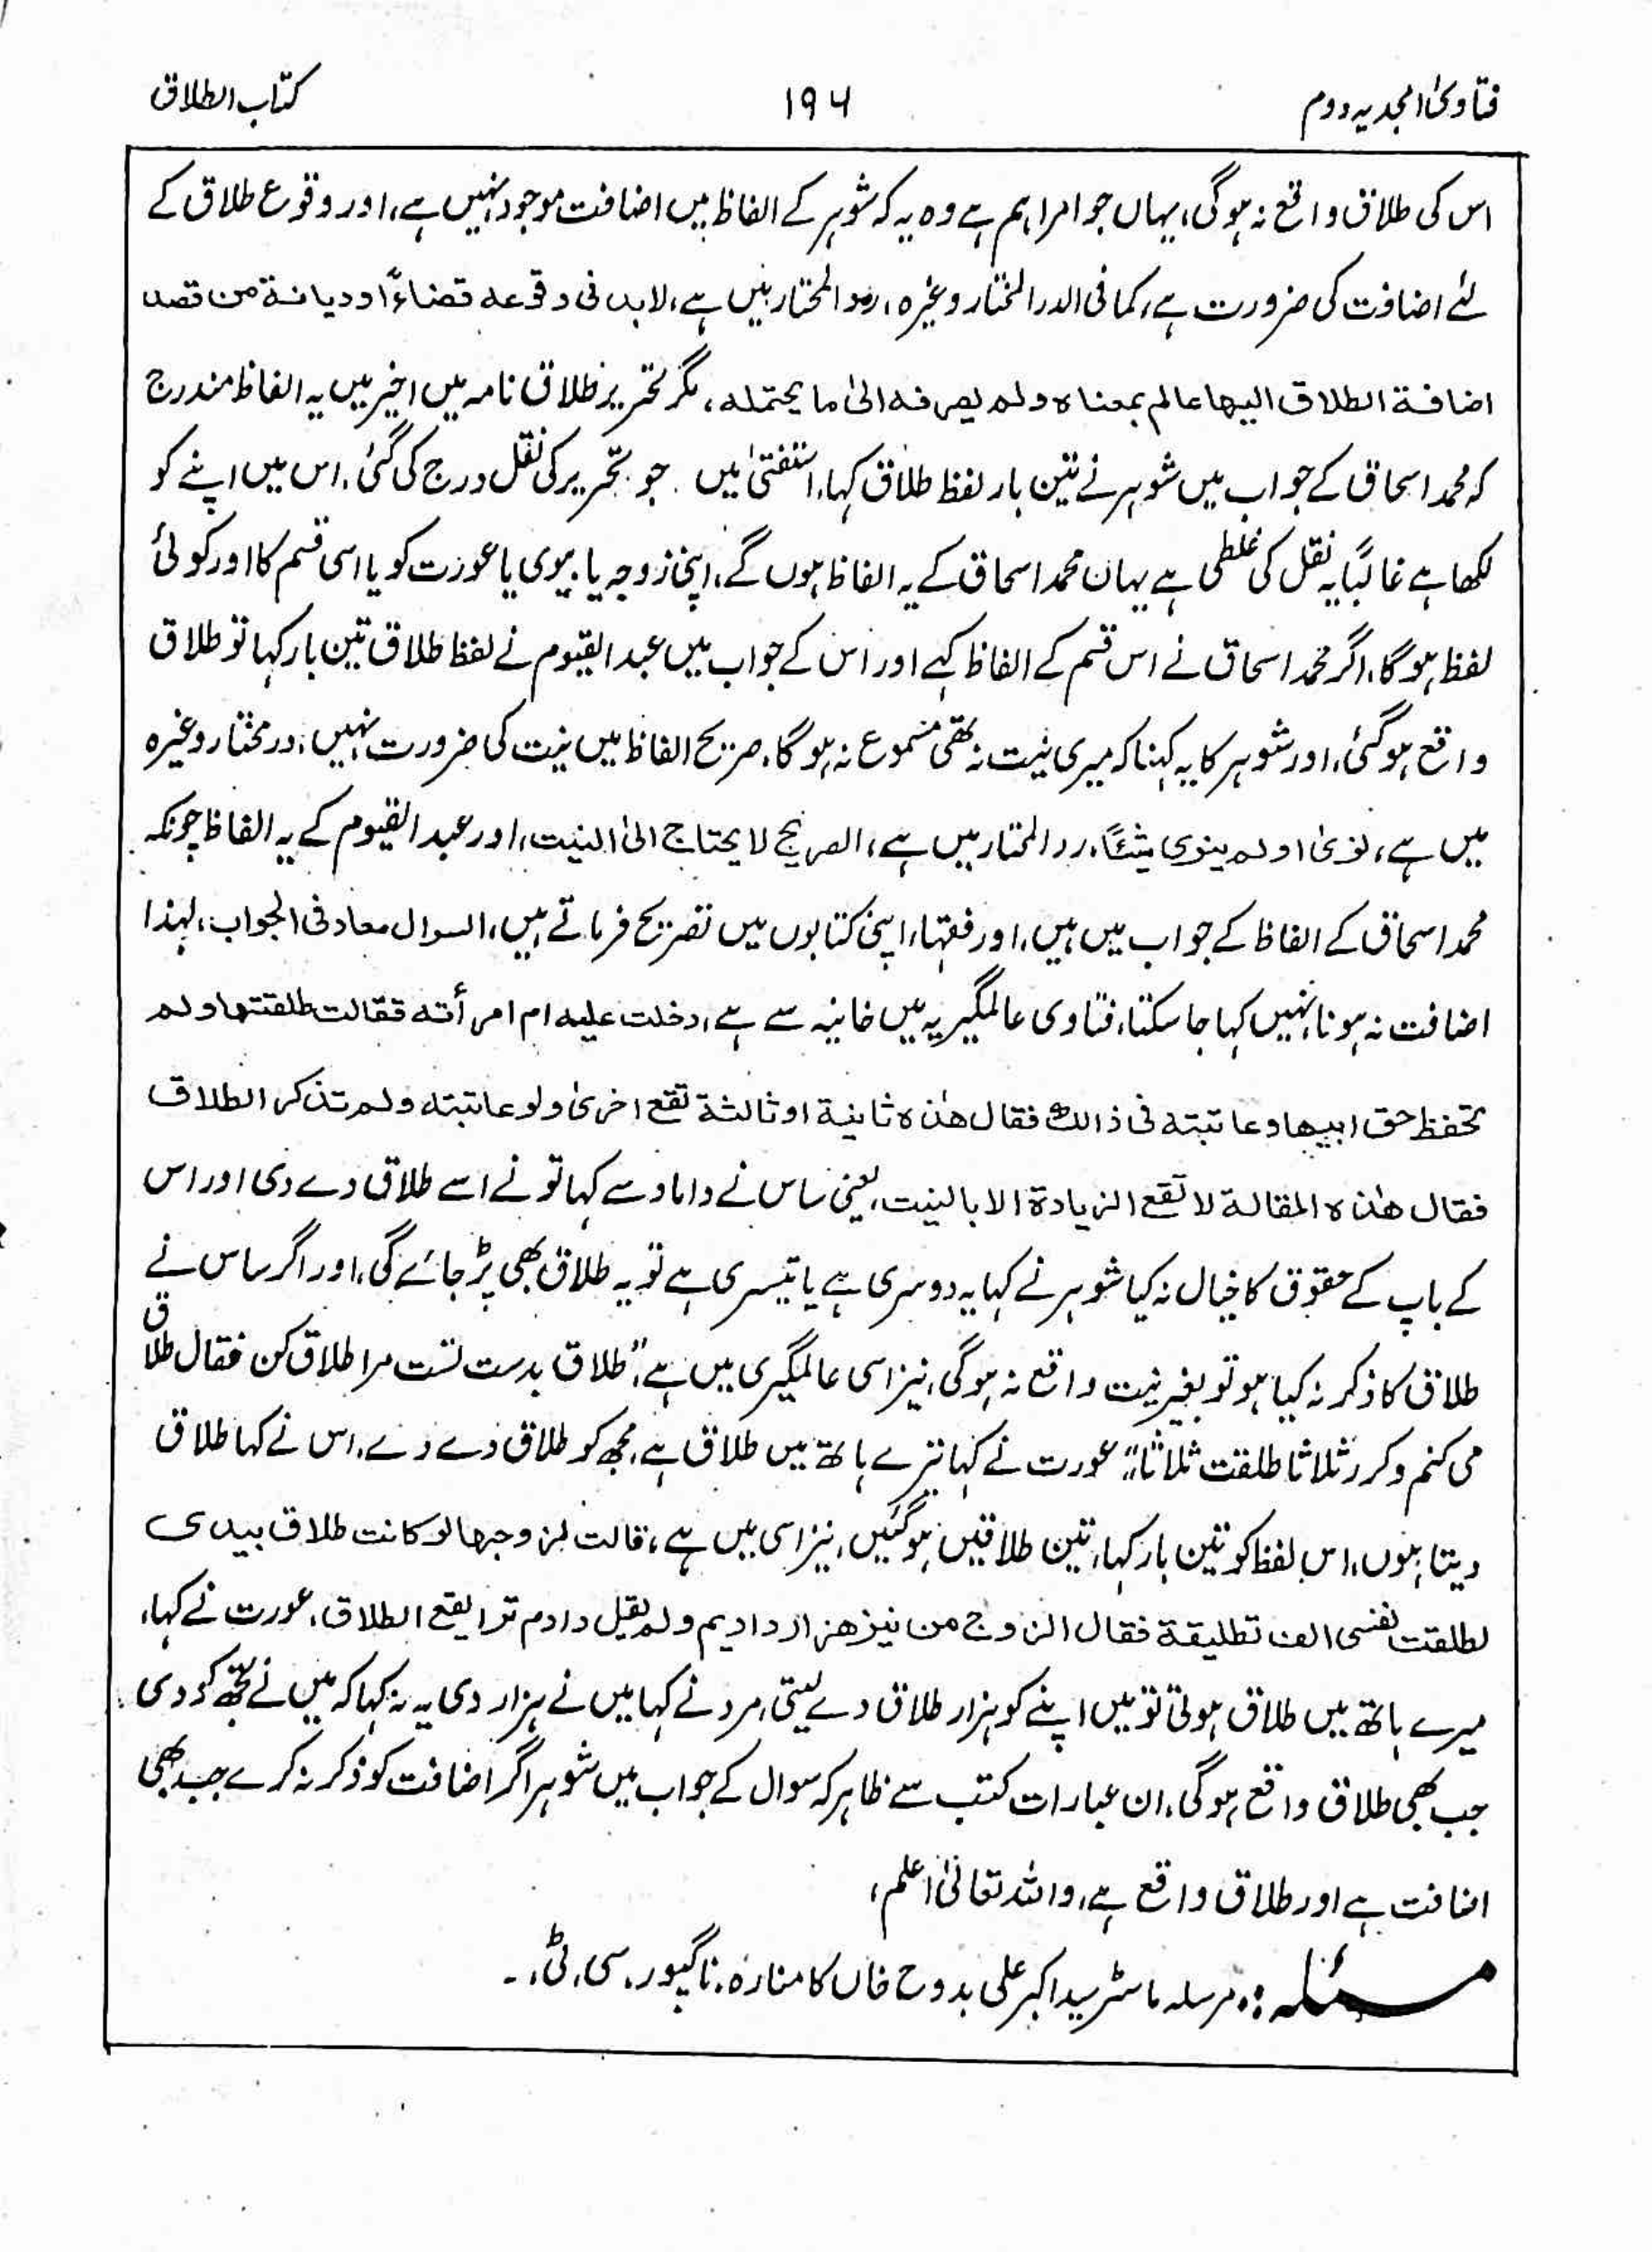 فتاویٰ امجدیہ دوم ۱۹۶ کتاب الطلاق
اس کی طلاق واقع نہ ہوگی، یہاں جو امر اہم ہے وہ یہ کہ شوہر کے الفاظ میں اضافت موجود نہیں ہے، اور وقوع طلاق کے
لئے اضافت کی ضرورت ہے، کما فی الدر المختار وغیرہ، ردالمحتار میں ہے، لابد فی وقوعہ قضاءً اودیانۃ من قصد
اضافۃ الطلاق الیھا عالم بمعناہ ولم یصرفہ الیٰ ما یحتملہ، مگر تحریر طلاق نامہ میں اخیر میں یہ الفاظ مندرج
کہ محمد اسحاق کے جواب میں شوہر نے تین بار لفظ طلاق کہا، استفتیٰ میں جو تحریر کی نقل درج کی گئی، اس میں اپنے کو
لکھا ہے غالبًا یہ نقل کی غلطی ہے یہان محمد اسحاق کے یہ الفاظ ہوں گے، اپنی زوجہ یا بیوی یا عورت کو یا اسی قسم کا اور کوئی
لفظ ہوگا، اگر محمد اسحاق نے اس قسم کے الفاظ کہے اور اس کے جواب میں عبدالقیوم نے لفظ طلاق تین بار کہا تو طلاق
واقع ہوگئی، اور شوہر کا یہ کہنا کہ میری نیت نہ تھی مسموع نہ ہوگا، صریح الفاظ میں نیت کی ضرورت نہیں، درمختار وغیرہ
میں ہے، نویٰ اولم ینوی شئًا، ردالمحتار میں ہے، الصریح لا یحتاج الیٰ النیت، اور عبدالقیوم کے یہ الفاظ چونکہ
محمد اسحاق کے الفاظ کے جواب میں ہیں، اور فقہاء اپنی کتابوں میں تصریح فرماتے ہیں، السوال معاد فی الجواب، لہذا
اضافت نہ ہونا نہیں کہا جا سکتا، فتاوی عالمگیریہ میں خانیہ سے ہے، دخلت علیہ ام امرأتہ فقالت طلقتھا ولم
تحفظ حق ابیھا وعاتبتہ فی ذالک فقال ھذہ ثانیۃ او ثالثۃ تقع اخریٰ ولو عاتبتہ ولم تذکر الطلاق
فقال ھٰذہ المقالۃ لا تقع الزیادۃ الا بالنیت، یعنی ساس نے داماد سے کہا تو نے اسے طلاق دے دی اور اس
کے باپ کے حقوق کا خیال نہ کیا شوہر نے کہا یہ دوسری ہے یا تیسری ہے تو یہ طلاق بھی پڑ جائے گی، اور اگر ساس نے
طلاق کا ذکر نہ کیا ہو تو بغیر نیت واقع نہ ہوگی، نیز اسی عالمگیری میں ہے، "طلاق بدست تست مرا طلاق کن فقال طلاق
می کنم وکرر ثلاثا طلقت ثلاثا"، عورت نے کہا تیرے ہاتھ میں طلاق ہے، مجھ کو طلاق دے دے، اس نے کہا طلاق
دیتا ہوں، اس لفظ کو تین بار کہا، تین طلاقیں ہوگئیں، نیز اسی میں ہے، قالت لزوجھا لو کانت طلاق بیدی
لطلقت نفسی الف تطلیقۃ فقال الزوج من نیز ھزار دادیم ولم یقل دادم ترا یقع الطلاق، عورت نے کہا،
میرے ہاتھ میں طلاق ہوتی تو میں اپنے کو ہزار طلاق دے لیتی، مرد نے کہا میں نے ہزار دی یہ نہ کہا کہ میں نے تجھ کو دی
جب بھی طلاق واقع ہوگی، ان عبارات کتب سے ظاہر کہ سوال کے جواب میں شوہر اگر اضافت کو ذکر نہ کرے جب بھی
اضافت ہے اور طلاق واقع ہے، واللہ تعالیٰ اعلم،
مسئلہ :۔ مرسلہ ماسٹر سید اکبر علی بدوح خاں کا منارہ، ناگپور، سی، ٹی، ۔